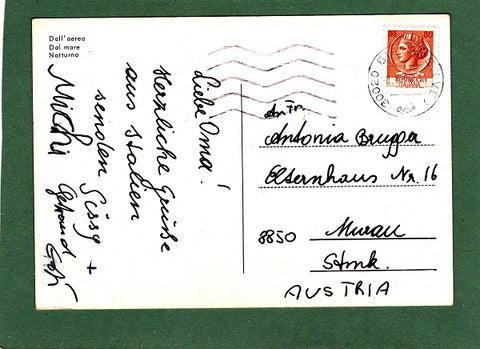 Dall'aereo
Dal mare
Notturno
Liebe Oma!
Herzliche Grüße
aus Italien
senden Sissy +
Michi Gertraud
80
30020
An Fr.
Antonia Brugger
Elternhaus Nr. 16
8850 Murau
Stmk.
AUSTRIA